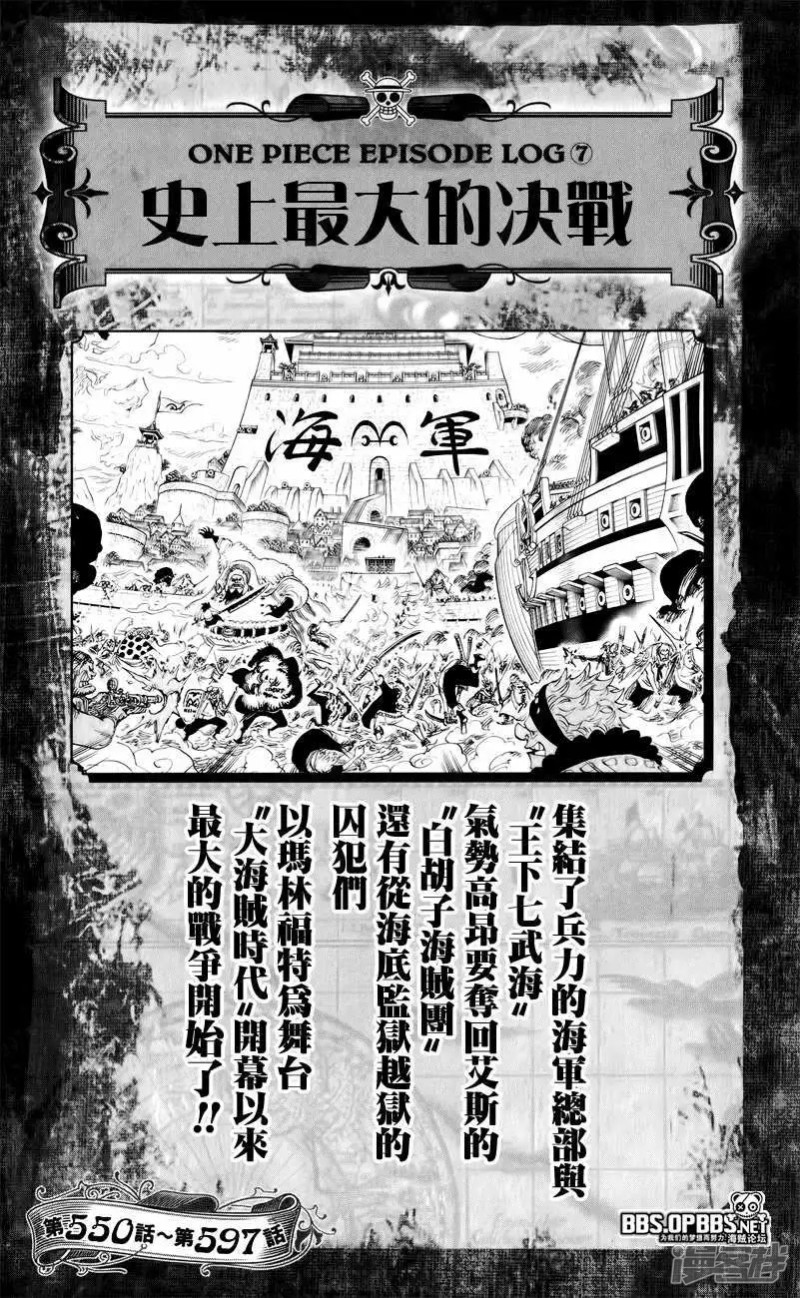 ONE PIECE EPISODE LOG⑦
史上最大的決戰
海軍
集結了兵力的海軍總部與
“王下七武海”
氣勢高昂要奪回艾斯的
“白胡子海賊團”
還有從海底監獄越獄的
囚犯們
以瑪林福特爲舞台
“大海賊時代”開幕以來
最大的戰爭開始了!!
第550話～第597話
BBS.OPBBS.NET
为我们的梦想而努力 海贼论坛
漫客栈